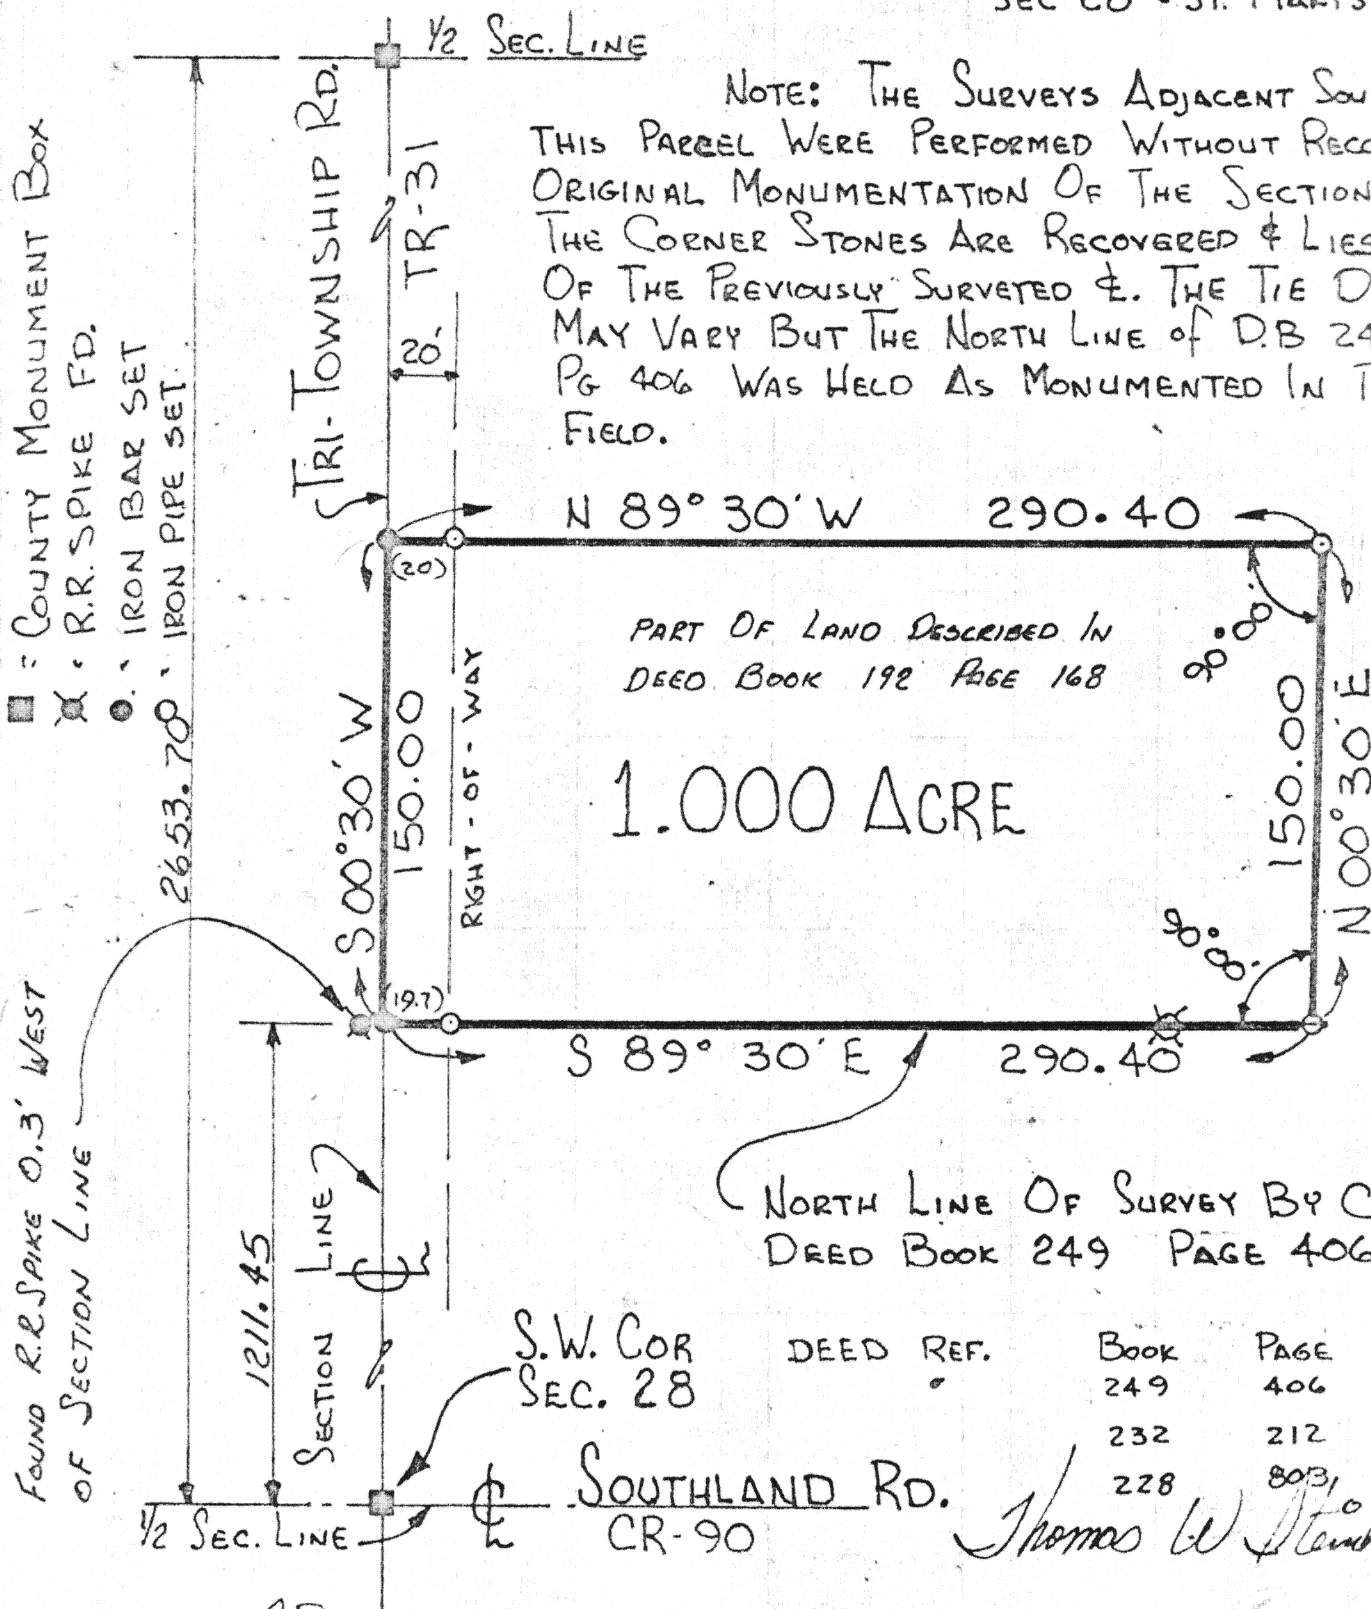 1/2 SEC. LINE
NOTE: THE SURVEYS ADJACENT
THIS PARCEL WERE PERFORMED WITHOUT
ORIGINAL MONUMENTATION OF THE SECTION
THE CORNER STONES ARE RECOVERED & LIES
OF THE PREVIOUSLY SURVEYED ℄. THE TIE
MAY VARY BUT THE NORTH LINE of D.B 24
PG 406 WAS HELD AS MONUMENTED IN
FIELD.
TRI-TOWNSHIP RD.
TR-31
20'
■ = COUNTY MONUMENT BOX
R.R. SPIKE FD.
IRON BAR SET
IRON PIPE SET.
2653.70
N 89° 30' W 290.40
(20)
PART OF LAND DESCRIBED IN
DEED BOOK 192 PAGE 168
1.000 ACRE
S 00° 30' W
150.00
RIGHT-OF-WAY
90° 00'
150.00
N 00° 30' E
90° 00'
(19.7)
S 89° 30' E 290.40
FOUND R.R. SPIKE 0.3' WEST
OF SECTION LINE
1211.45
SECTION LINE
℄
NORTH LINE OF SURVEY BY C
DEED BOOK 249 PAGE 406
S.W. COR
SEC. 28
DEED REF. BOOK PAGE
249 406
232 212
228 803
1/2 SEC. LINE
℄
SOUTHLAND RD.
CR-90
Thomas W